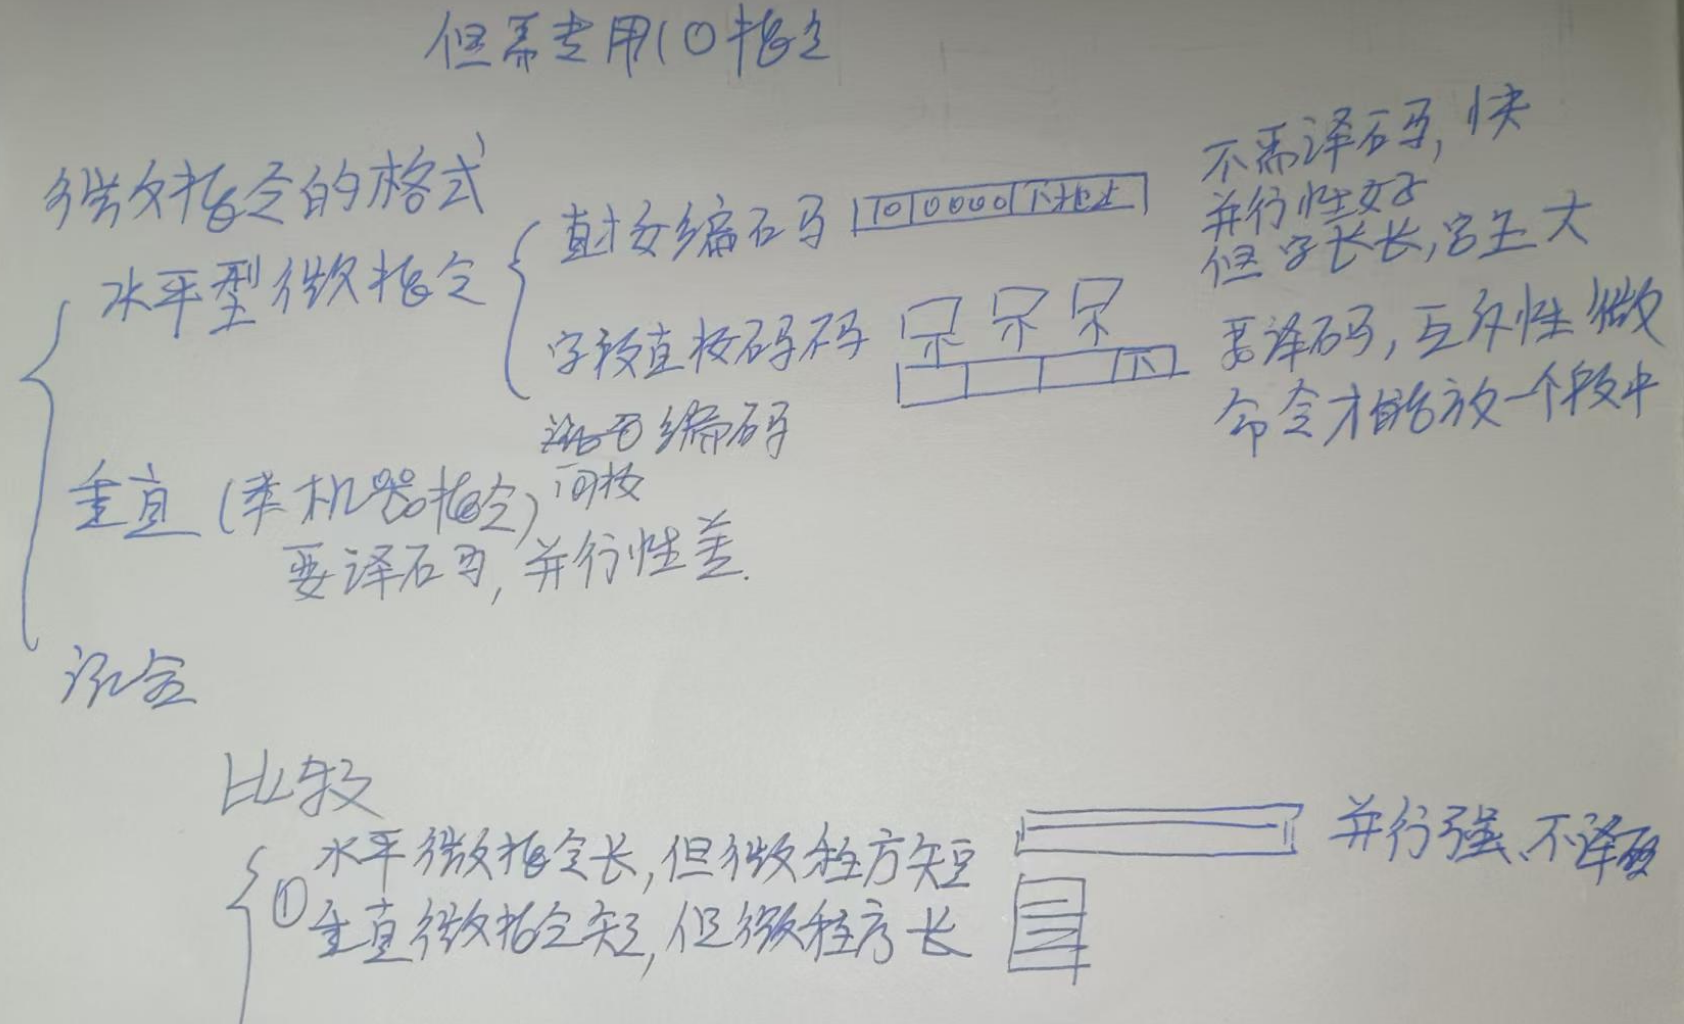 但需专用IO指令
微指令的格式
水平型微指令
直接编码 1010000 下地址
不需译码,快
并行性好
但字长长,容量大
字段直接码码 下
要译码,互斥性微
命令才能放一个段中
编码
间接
垂直(类机器指令)
要译码,并行性差.
混合
比较
① 水平微指令长,但微程序短
并行强、不译码
垂直微指令短,但微程序长